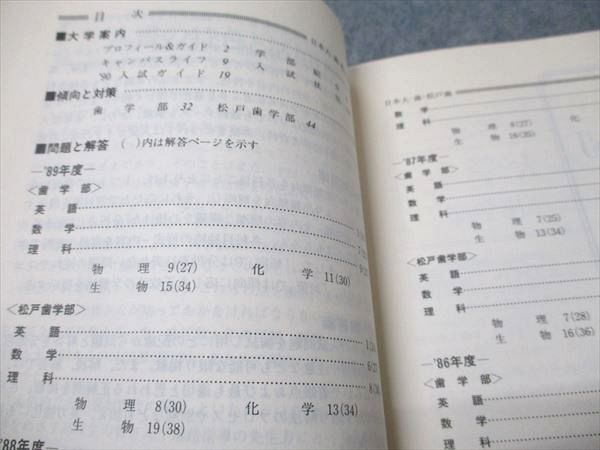 目 次
■大学案内
プロフィール&ガイド 2 学部
キャンパスライフ 9 入試
'90 入試ガイド 19
■傾向と対策
歯学部 32 松戸歯学部 44
■問題と解答 ( )内は解答ページを示す
—'89年度—
〈歯学部〉
英語
数学
理科
物理 9(27) 化学 11(30)
生物 15(34)
〈松戸歯学部〉
英語
数学
理科
物理 8(30) 化学 13(34)
生物 19(38)
'88年度—
日本大-歯・松戸歯
数学
理科
物理 8(27) 化
生物 18(35)
—'87年度—
〈歯学部〉
英語
数学
理科
物理 7(25)
生物 13(34)
〈松戸歯学部〉
英語
数学
理科
物理 7(28)
生物 16(36)
—'86年度—
〈歯学部〉
英語
数学
理科